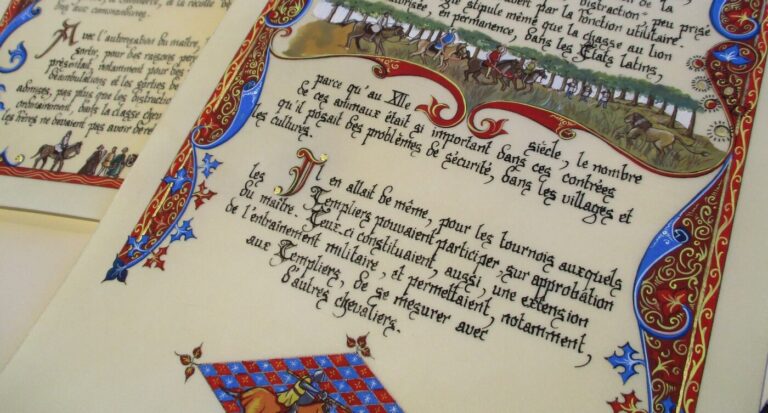 et la récolte
des commanderies.
Avec l'autorisation du maître,
sortir, pour des raisons per
présentait, notamment pour des
déambulations et les sorties d
admises, pas plus que les distractio
ordinairement, dans la classe chev
les frères ne devaient pas avoir de re
par la fonction utilitaire.
distraction, peu prisé
que stipule même que la chasse au lion
autorisée, en permanence, dans les États latins,
parce qu'au XIIe siècle, le nombre
de ces animaux était si important dans ces contrées
qu'il posait des problèmes de sécurité, dans les villages et
les cultures.
Il en allait de même, pour les tournois auxquels
les Templiers pouvaient participer, sur approbation
du maître. Ceux-ci constituaient, aussi, une extension
de l'entrainement militaire, et permettaient, notamment,
aux Templiers, de se mesurer avec
d'autres chevaliers.